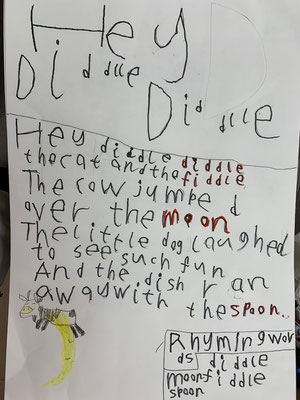 Hey D
Diddle
Diddle
Hey diddle diddle
the cat and the fiddle
The cow jumped
over the moon
The little dog laughed
to see such fun
And the dish ran
away with the spoon.
Rhyming wor
ds diddle
moon fiddle
spoon